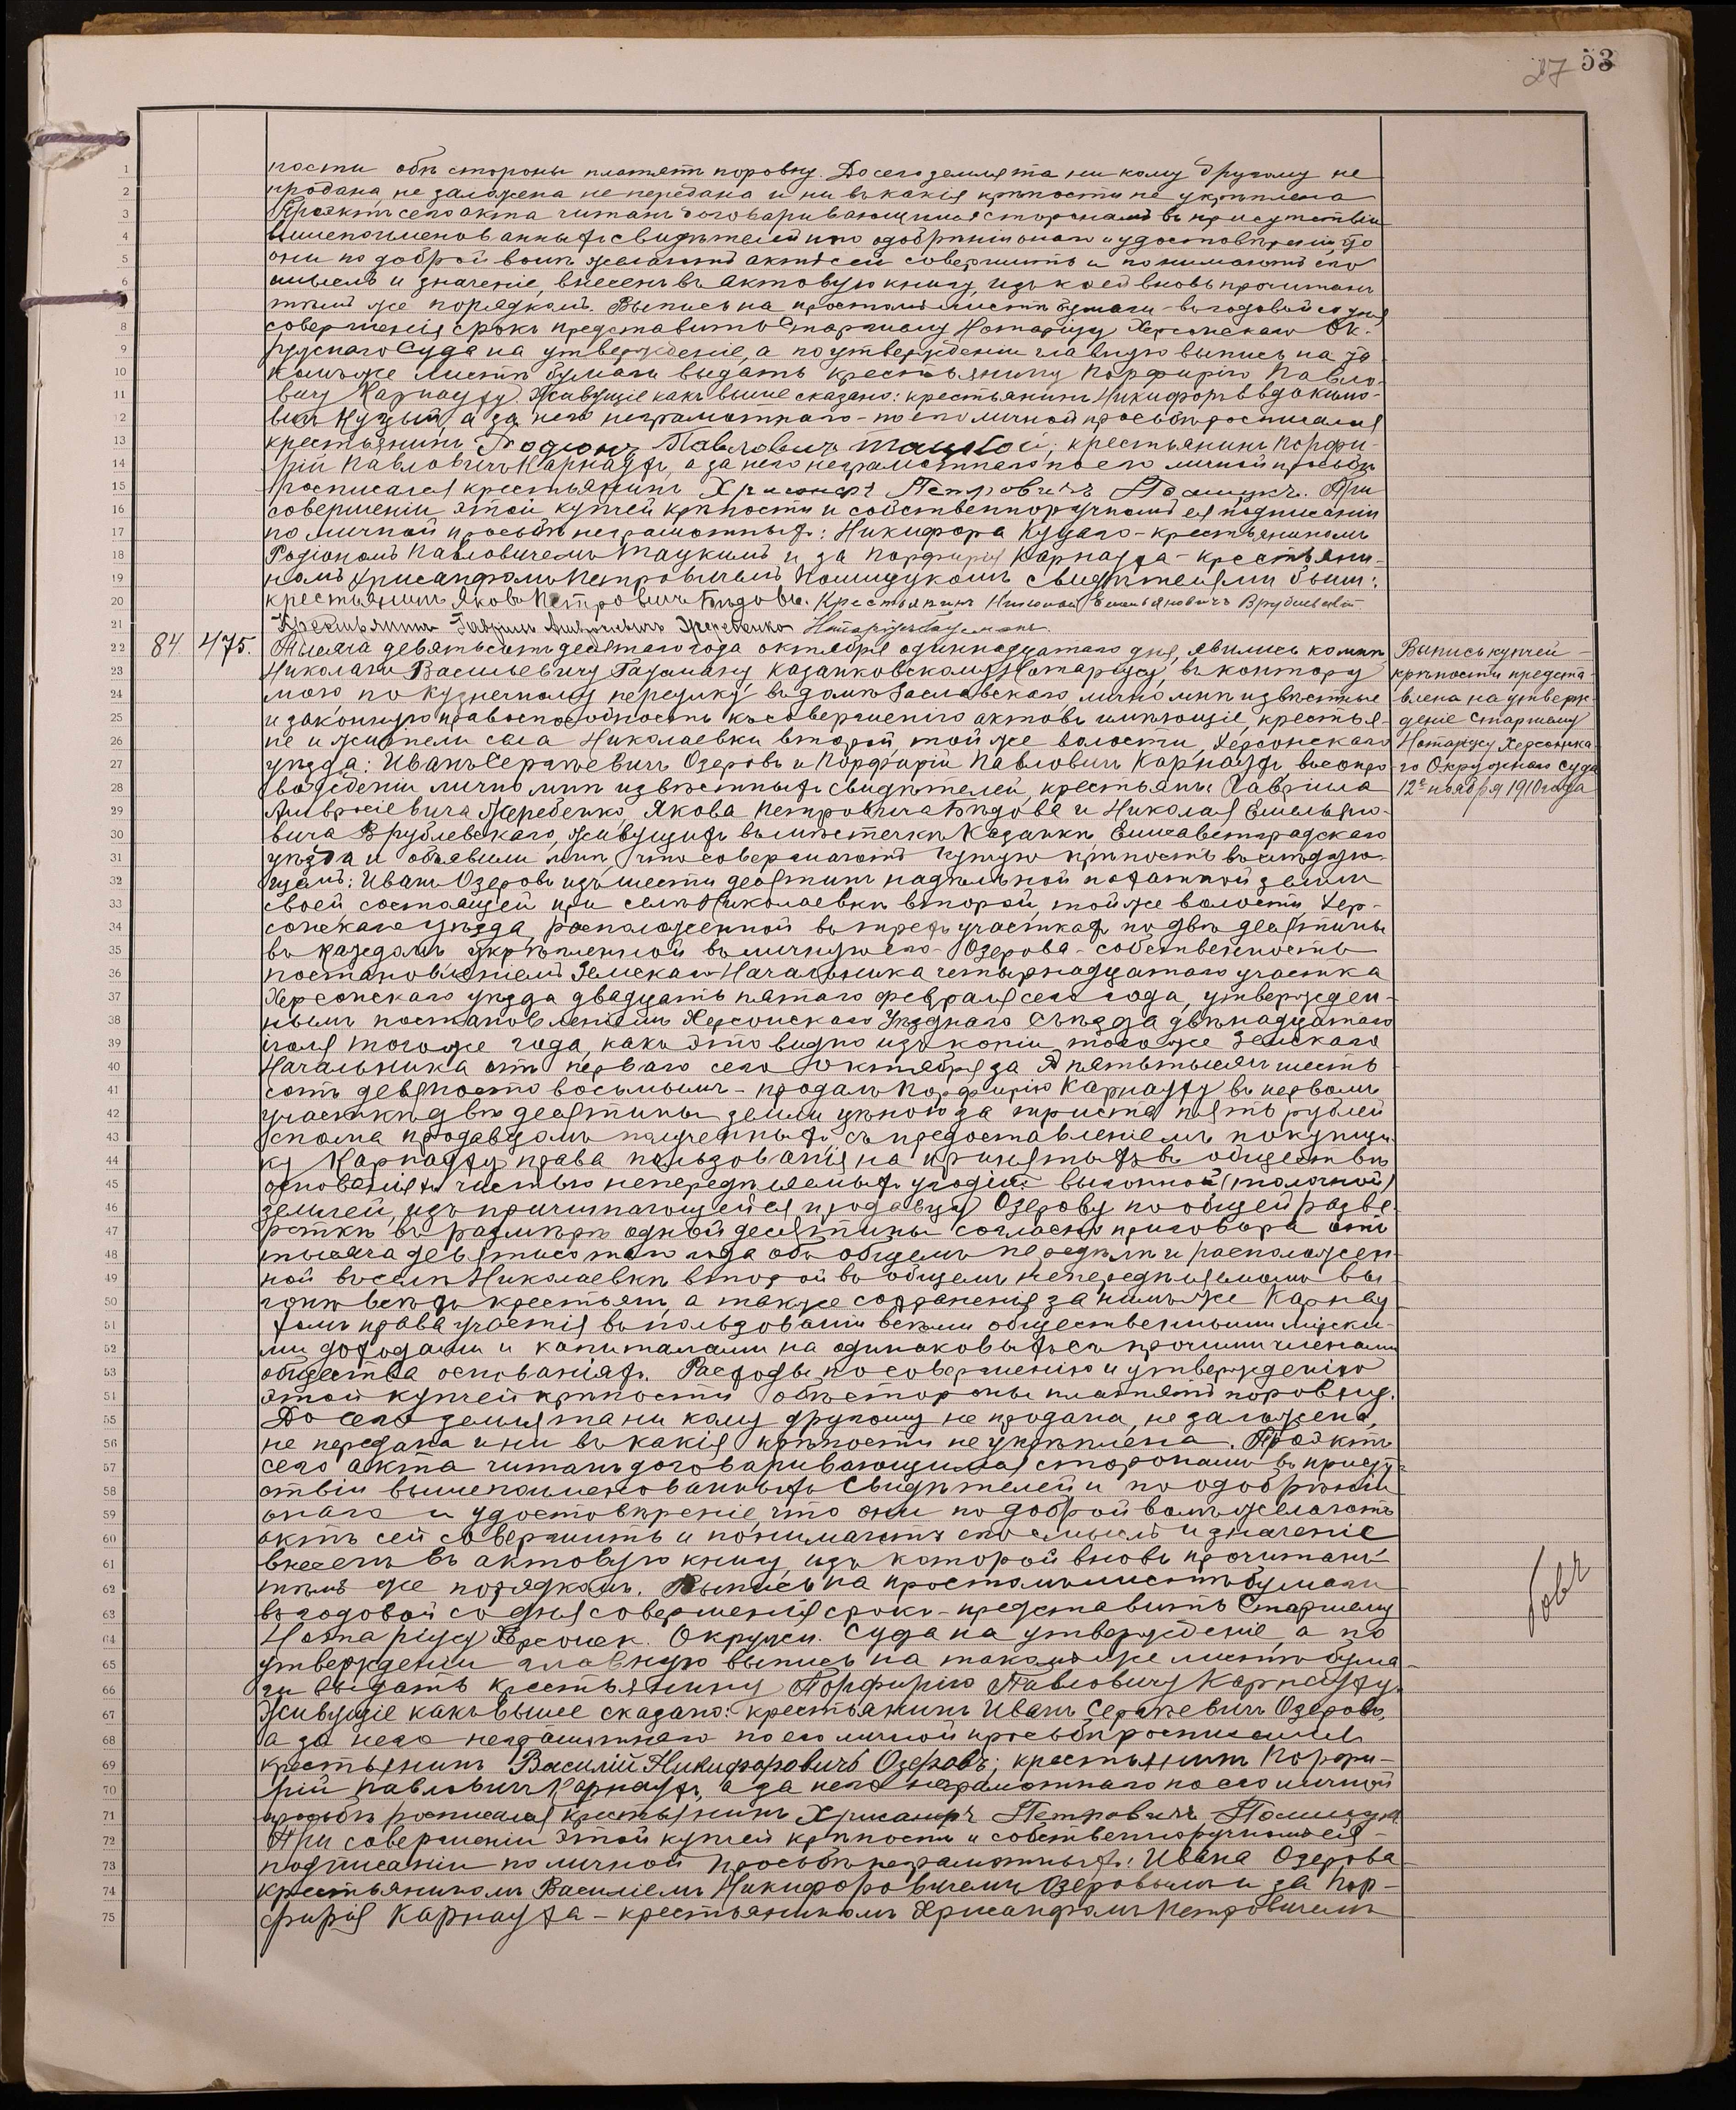 27 53
ности обѣ стороны платятъ поровну. До сего земля та ни кому другому не
продана, не заложена не передана и ни въ какія крѣпости не укрѣплена
Проэктъ сего акта читанъ договаривающимся сторонамъ въ присутствіи
вышепоименованныхъ свидѣтелей и по одобреніи онаго и удостовѣреніи, что
они по доброй волѣ желаютъ актъ сей совершить и понимаютъ его
смыслъ и значеніе, внесенъ въ актовую книгу, изъ коей вновь прочитанъ
тѣмъ же порядкомъ. Выпись на простомъ листѣ бумаги - въ годовой со дня
совершенія срокъ представить Старшему Нотаріусу Херсонскаго Ок-
ружнаго Суда на утвержденіе, а по утвержденіи главную выпись на та-
комъ же листѣ бумаги выдать крестьянину Порфирію Павло-
вичу Карнауху. Живущіе какъ выше сказано: крестьянинъ Никифоръ Евдокимо-
вичъ Куцый, а за него неграмотнаго - по его личной просьбѣ росписался
крестьянинъ Родіонъ Павловичъ Тацкій; крестьянинъ Порфи-
рій Павловичъ Карнаухъ, а за него неграмотнаго по его личной просьбѣ
росписался крестьянинъ Хрисанфъ Петровичъ Полищукъ. При
совершеніи этой купчей крѣпости и собственноручномъ ея подписаніи
по личной просьбѣ неграмотныхъ: Никифора Куцаго - крестьяниномъ
Родіономъ Павловичемъ Тацкимъ и за Порфирія Карнауха - крестьяни-
номъ Хрисанфомъ Петровичемъ Полищукомъ свидѣтелями были:
крестьянинъ Яковъ Петровичъ Бѣдовъ. Крестьянинъ Николай Емельяновичъ Врублевскій
Крестьянинъ Гаврилъ Амвросіевичъ Жеребенко Нотаріусъ Гаусманъ.
84 475. Тысяча девятьсотъ десятаго года октября одиннадцатаго дня, явились ко мнѣ
Николаю Васильевичу Гаусману, Казанковскому Нотаріусу, въ контору
мою, по Кузнечному переулку въ домѣ Заславскаго, лично мнѣ извѣстные
и законную правоспособность къ совершенію актовъ имѣющіе, крестья-
не и жители села Николаевки второй, той же волости, Херсонскаго
уѣзда: Иванъ Сергѣевичъ Озеровъ и Порфирій Павловичъ Карнаухъ, въ сопро-
вожденіи лично мнѣ извѣстныхъ свидѣтелей, крестьянъ: Гаврила
Амвросіевича Жеребенко, Якова Петровича Бѣдова и Николая Емельяно-
вича Врублевскаго, живущихъ въ мѣстечкѣ Казанкѣ Елисаветградскаго
уѣзда и объявили мнѣ, что совершаютъ купчую крѣпость въ слѣдую-
щемъ: Иванъ Озеровъ изъ шести десятинъ надѣльной пахатной земли
своей состоящей при селѣ Николаевкѣ второй, той же волости, Хер-
сонскаго уѣзда, расположенной въ трехъ участкахъ по двѣ десятины
въ каждомъ укрѣпленной въ личную его - Озерова - собственность
постановленіемъ Земскаго Начальника четырнадцатаго участка
Херсонскаго уѣзда двадцать пятаго февраля сего года, утвержден-
нымъ постановленіемъ Херсонскаго Уѣзднаго Съѣзда двѣнадцатаго
іюля того же года, какъ это видно изъ копіи того же Земскаго
Начальника отъ перваго сего Октября за № пять тысячъ шесть
сотъ девяносто восьмымъ - продалъ Порфирію Карнауху въ первомъ
участкѣ двѣ десятины земли цѣною за триста пять рублей
сполна продавцомъ полученныхъ, съ предоставленіемъ покупщи-
ку Карнауху права пользованія на принятыхъ въ обществѣ
основаніяхъ частью непередѣляемыхъ угодій выгонной (толочной)
землей, изъ причитающейся продавцу Озерову по общей развер-
сткѣ въ размѣрѣ одной десятины согласно приговора отъ
тысяча девятисотаго года объ общемъ передѣлѣ и расположен-
ной въ селѣ Николаевкѣ второй въ общемъ непередѣляемомъ вы-
гонѣ всѣхъ крестьянъ, а также сохраненія за нимъ же Карнау-
хомъ права участія въ пользованіи всѣми общественными мірски-
ми доходами и капиталами на одинаковыхъ съ прочими членами
общества основаніяхъ. Расходы по совершенію и утвержденію
этой купчей крѣпости обѣ стороны платятъ поровну.
До сего земля та ни кому другому не продана, не заложена,
не передана и ни въ какія крѣпости не укрѣплена. Проэктъ
сего акта читанъ договаривающимся сторонамъ въ присут-
ствіи вышепоименованныхъ свидѣтелей и по одобреніи
онаго и удостовѣреніе, что они по доброй волѣ желаютъ
актъ сей совершить и понимаютъ его смыслъ и значеніе
внесенъ въ актовую книгу, изъ которой вновь прочитанъ
тѣмъ же порядкомъ. Выпись на простомъ листѣ бумаги
въ годовой со дня совершенія срокъ - представить Старшему
Нотаріусу Херсонск. Окружн. Суда на утвержденіе, а по
утвержденіи главную выпись на такомъ же листѣ бума-
ги выдать крестьянину Порфирію Павловичу Карнауху.
Живущіе какъ выше сказано: крестьянинъ Иванъ Сергѣевичъ Озеровъ,
а за него неграмотнаго по его личной просьбѣ росписался
крестьянинъ Василій Никифоровичъ Озеровъ; крестьянинъ Порфи-
рій Павловичъ Карнаухъ, а за него неграмотнаго по его личной
просьбѣ росписался крестьянинъ Хрисанфъ Петровичъ Полищукъ
При совершеніи этой купчей крѣпости и собственноручномъ ея
подписаніи по личной просьбѣ неграмотныхъ: Ивана Озерова
крестьяниномъ Василіемъ Никифоровичемъ Озеровымъ и за Пор-
фирія Карнауха - крестьяниномъ Хрисанфомъ Петровичемъ
Выпись купчей
крѣпости предста-
влена на утверж-
деніе Старшему
Нотаріусу Херсонска-
го Окружнаго Суда
12го ноября 1910 года